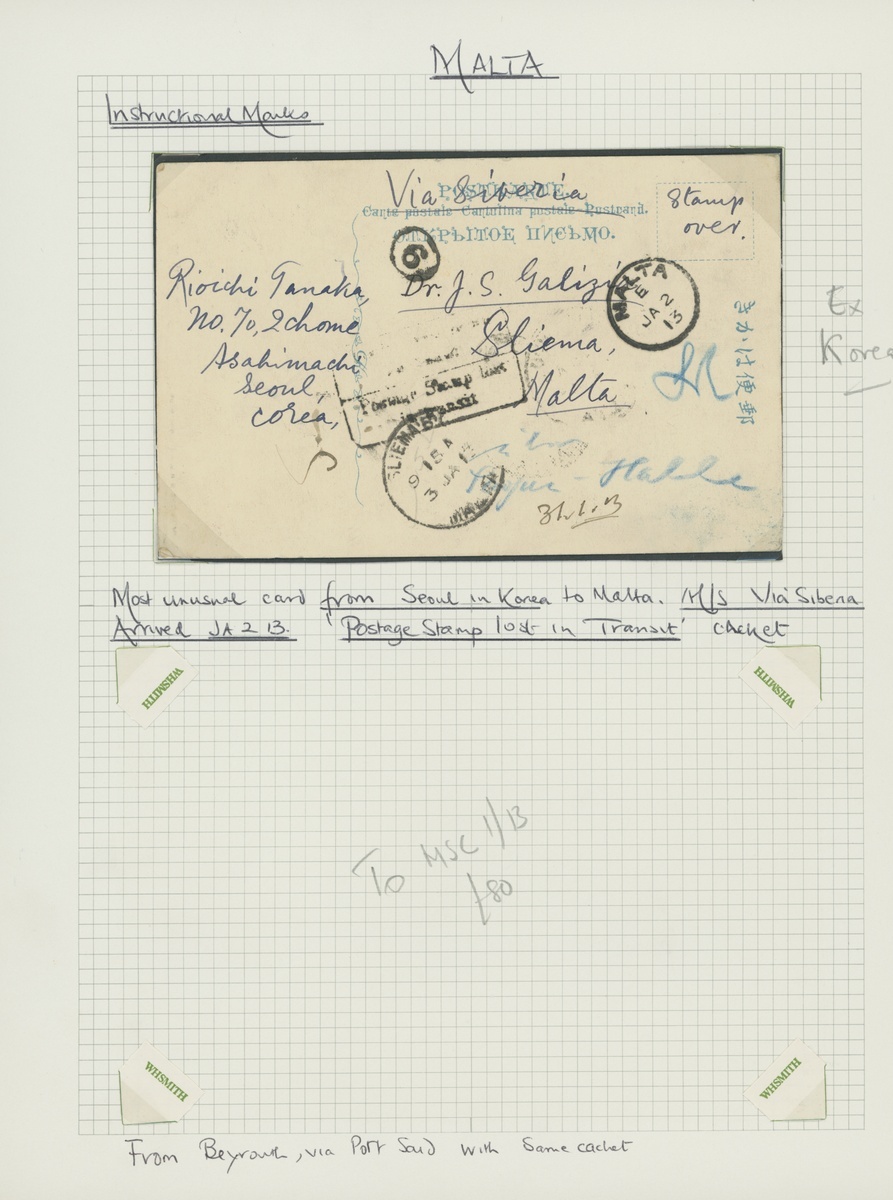 MALTA
Instructional Marks
Via Siberia
POSTKARTE
Carte postale Cartolina postale Postcard.
ОТКРЫТОЕ ПИСЬМО.
Stamp
over.
6
Rioichi Tanaka,
No. 70, 2 chome
Asahimachi
Seoul,
Corea,
Dr. J. S. Galizia
Sliema,
Malta
MALTA
E
JA 2
13
きかは便郵
Postage Stamp lost
in transit
SLIEMA
9 15 A
3 JA 13
MALTA
31.1.13
Ex
Korea
Most unusual card from Seoul in Korea to Malta. M/S Via Siberia
Arrived JA 2 13. 'Postage Stamp lost in Transit' cachet
WHSMITH
WHSMITH
To MSC 1/13
£80
WHSMITH
WHSMITH
From Beyrouth, via Port Said with Same cachet